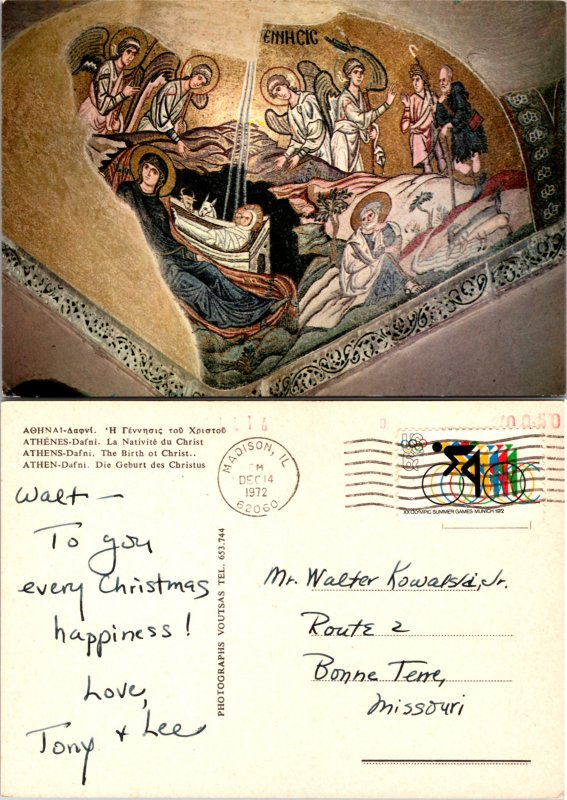 ΕΝΝΗϹΙϹ
ΑΘΗΝΑΙ-Δαφνί. Ἡ Γέννησις τοῦ Χριστοῦ
ATHÉNES-Dafni. La Nativité du Christ
ATHENS-Dafni. The Birth ot Christ..
ATHEN-Dafni. Die Geburt des Christus
Walt —
To you
every Christmas
happiness!
Love,
Tony + Lee
PHOTOGRAPHS VOUTSAS TEL. 653.744
MADISON, IL
PM
DEC 14
1972
62060
US
6c
XX OLYMPIC SUMMER GAMES·MUNICH 1972
Mr. Walter Kowalski, Jr.
Route 2
Bonne Terre,
Missouri